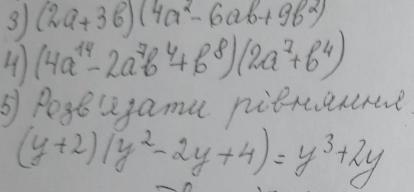 3) (2a+3b)(4a²-6ab+9b²)
4) (4a¹⁴-2a⁷b⁴+b⁸)(2a⁷+b⁴)
5) Розв'язати рівняння
(y+2)(y²-2y+4)=y³+2y